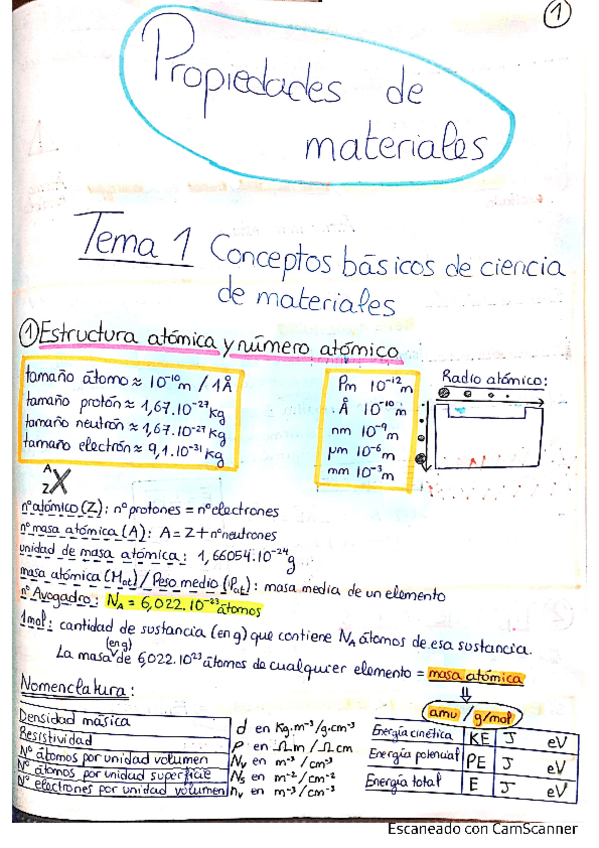 1
Propiedades de
materiales
Tema 1 Conceptos básicos de ciencia
de materiales
① Estructura atómica y número atómico
tamaño átomo ≈ 10⁻¹⁰ m / 1 Å
tamaño protón ≈ 1,67.10⁻²⁷ kg
tamaño neutrón ≈ 1,67.10⁻²⁷ kg
tamaño electrón ≈ 9,1.10⁻³¹ kg
Pm 10⁻¹² m
Å 10⁻¹⁰ m
nm 10⁻⁹ m
µm 10⁻⁶ m
mm 10⁻³ m
Radio atómico:
A
Z X
nº atómico (Z): nº protones = nº electrones
nº masa atómica (A): A = Z + nº neutrones
unidad de masa atómica: 1,66054.10⁻²⁴ g
masa atómica (Mat) / Peso medio (Pat): masa media de un elemento
nº Avogadro: NA = 6,022.10⁻²³ átomos
1 mol: cantidad de sustancia (en g) que contiene NA átomos de esa sustancia.
(en g)
La masa de 6,022.10²³ átomos de cualquier elemento = masa atómica
⇓
amu / g/mol
Nomenclatura:
Densidad másica d en Kg.m⁻³/g.cm⁻³
Resistividad ρ en Ω.m / Ω cm
Nº átomos por unidad volumen Nv en m⁻³ /cm⁻³
Nº átomos por unidad superficie Ns en m⁻² /cm⁻²
Nº electrones por unidad volumen nv en m⁻³ /cm⁻³
Energía cinética KE J eV
Energía potencial PE J eV
Energía total E J eV
Escaneado con CamScanner